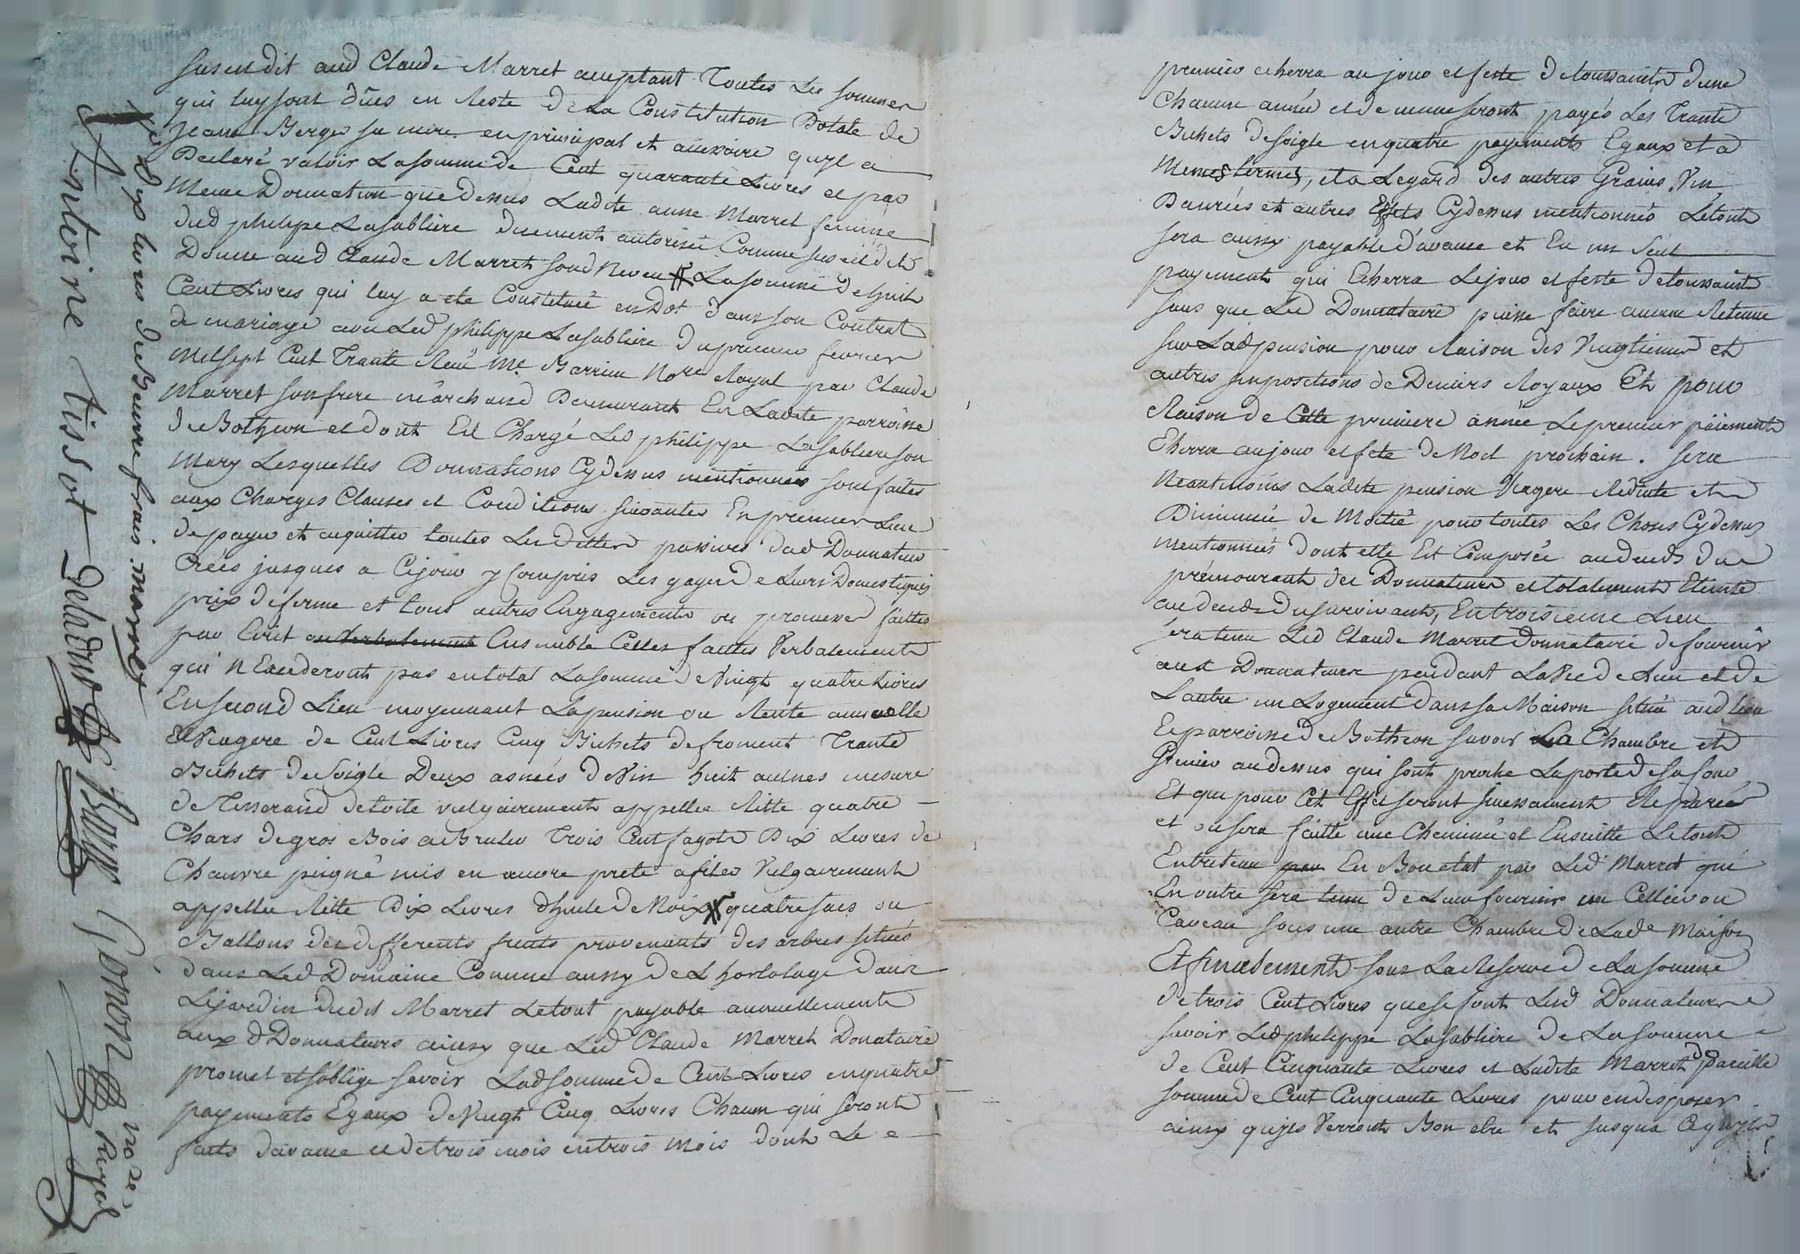 susendit aud Claude Marret acceptant Toutes Les sommes
qui luy sont dües en Reste De La Constitution Dotale de
Jeanne Berger sa mere en principal et accessoire qu'il a
Declaré valoir La somme de Cent quarante Livres et par
Meme Donnation que Dessus Ladite anne Marret femme
dud philippe Lasabliere duement autorisée Comme sus est dit
Donne aud Claude Marret soud Neveu La somme de huit
Cent Livres qui luy a ete Constituée en Dot dans son Contrat
de mariage avec Led philippe Lasabliere du premier fevrier
Mil sept Cent Trante Reçu Me Barrieu Nore Royal par Claude
Marret son frere marchand Demeurant En Ladite parroisse
de Botheon et dont Est Chargé Led philippe Lasabliere son
Mary Lesquelles Donnations Cydessus mentionnées sont faites
aux Charges Clauses et Conditions suivantes En premier Lieu
de payer et acquitter toutes Les dettes passives dud Donnateurs
Créés jusques a Cejour y Compris Les gages de Leurs Domestiques
prix de ferme et tous autres Engagements ou promesses faittes
par Ecrit ou verbalement Ensemble Celles faittes Verbalement
qui n'Excederont pas en total La somme de Vingt quatre Livres
En second Lieu moyennant La pension ou Rente annuelle
et Viagere de Cent Livres Cinq Bichets de froment Trante
Bichets de soigle Deux asnées de Vin huit aulnes mesure
de Tisserand de toile vulgairement appellée Ritte quatre
Chars de gros Bois a Bruler Trois Cent fagots Dix Livres de
Chanvre peigné mis en œuvre prete a filer Vulgairement
appellée Ritte Dix Livres d'huile de Noix quatre sacs ou
Ballons des differents fruits provenants des arbres situés
dans Led Domaine Comme aussy de L'hortolage dans
Le jardin dudit Marret Le tout payable annuellement
aux d Donnateurs ainsy que Led Claude Marret Donataire
promet et s'oblige savoir Lad somme de Cent Livres en quatre
payements Egaux de Vingt Cinq Livres Chacun qui seront
faits d'avance et de trois mois en trois mois dont Le
premier echerra au jour et feste de toussaints d'une
Chacune année et de meme seront payés Les Trante
Bichets de soigle en quatre payements Egaux et a
Memes termes, et a Legard des autres Grains, Vin
Danrées et autres Effets Cydessus mentionnés Le tout
sera aussy payable d'avance et En un seul
payement qui Echerra Le jour et feste de toussaints
sans que Led Donnataire puisse faire aucune Retenue
sur Lad pension pour Raison des Vingtiemes et
autres impositions de Deniers Royaux Et pour
Raison de Cette premiere année Le premier paiement
Echerra au jour et fete de Noel prochain. sera
Neantmoins Ladite pension Viagere Reduite et
Diminuée de Moitié pour toutes Les Choses Cydessus
mentionnées dont elle Est Composée au deceds du
prémourant des Donnateurs et totalement Eteinte
au deceds du survivant, En troisieme Lieu
sera tenu Led Claude Marret Donnataire de fournir
aux Donnateurs pendant La Vie de L'un et de
L'autre un Logement dans sa Maison située aud Lieu
Et parroisse de Botheon savoir La Chambre et
Grenier au dessus qui sont proche La porte de sa Cour
Et que pour Cet Effet seront incessament Reparée
et ou sera faitte une Cheminée et Ensuitte Le tout
Entretenu par En Bon etat par Led Marret qui
En outre sera tenu de Leur fournir un Cellier ou
Caveau sous une autre Chambre de Lade Maison
Et finalement sous La Reserve de La somme
de trois Cent Livres que se font Lesd Donnateurs
savoir Led philippe Lasabliere de La somme
de Cent Cinquante Livres et Ladite Marret pareille
somme de Cent Cinquante Livres pour en disposer
ainsy qu'ils Verront Bon etre et jusqua
dix livres de Beurre frais. marret
Antoine tissot
Gonon